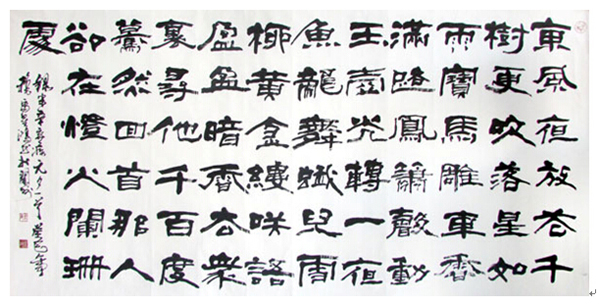 東風夜放花千
樹更吹落星如
雨寶馬雕車香
滿路鳳簫聲動
玉壺光轉一夜
魚龍舞蛾兒雪
柳黃金縷咲語
盈盈暗香去衆
裏尋他千百度
驀然回首那人
卻在燈火闌珊
處
錄宋辛棄疾元夕一首